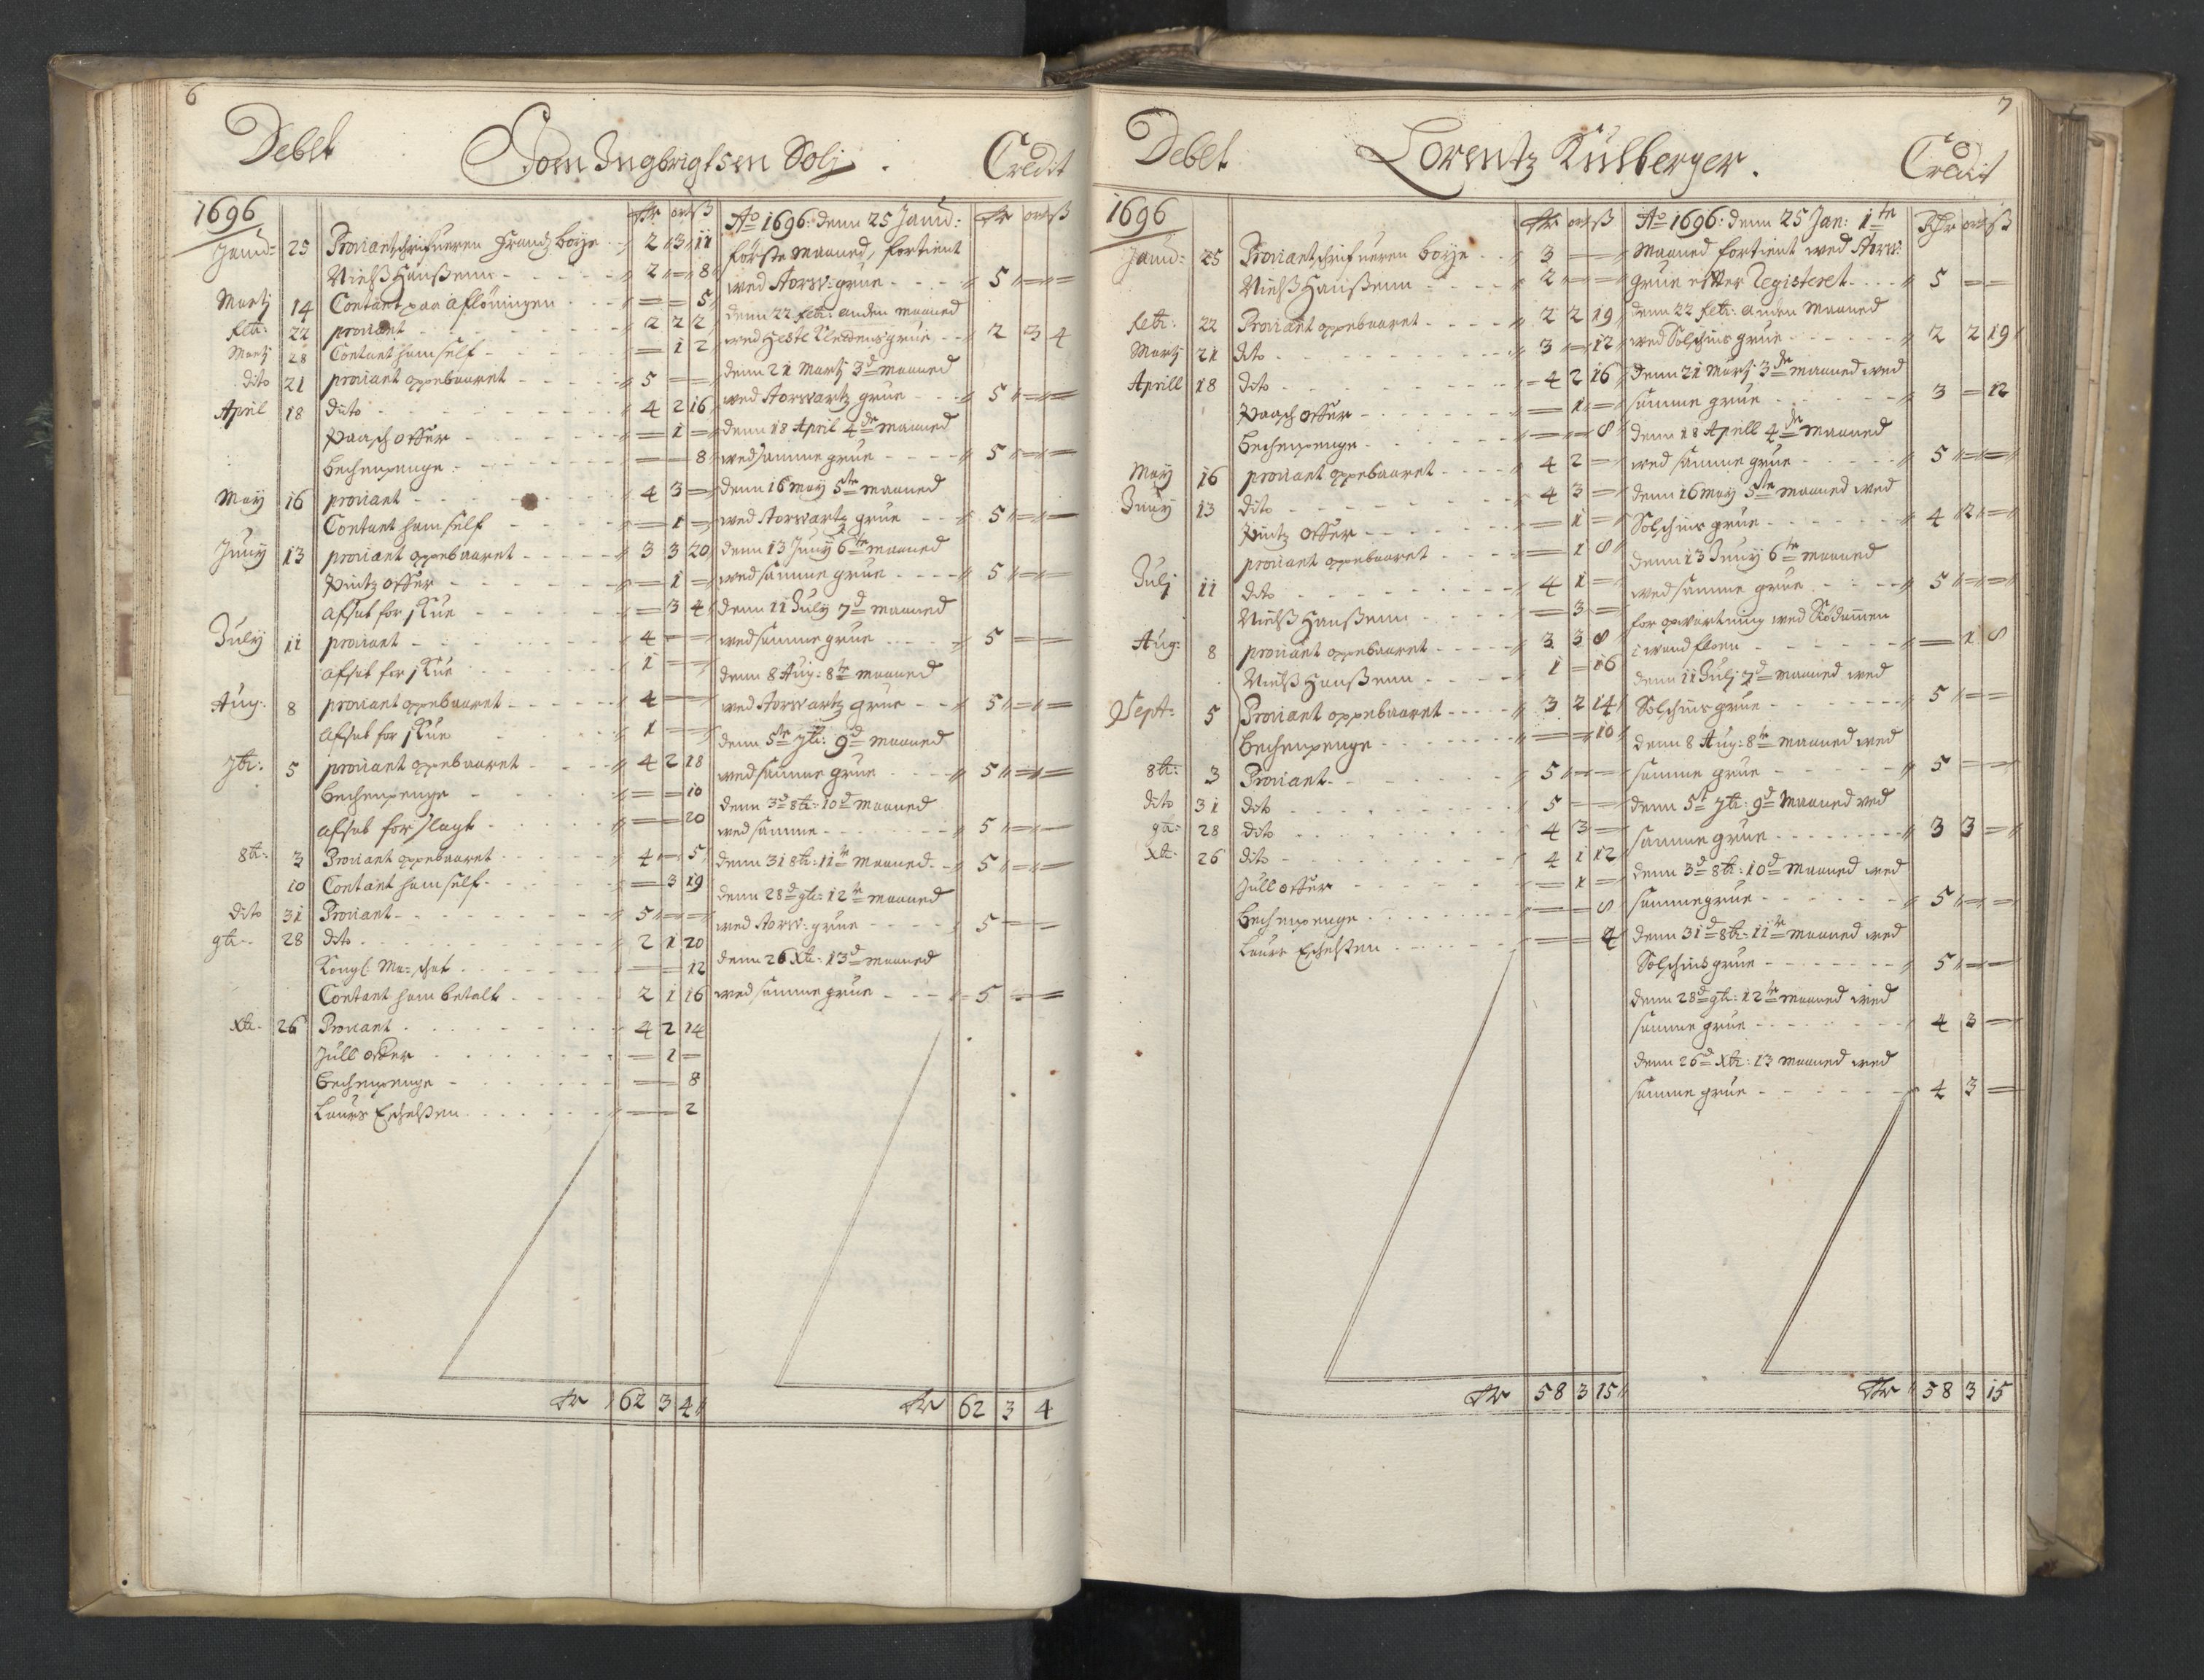 6
Debet Joen Ingbrigtsen Solj. Credit
1696 Rdr ort ß
Janu: 25 Proviantschrifueren Frandz Boÿe 2 3 11
Nielß Hanßenn 2 = 8
Martj 14 Contant paa Aflöningen = = 5
febr: 22 proviant 2 2 2
Martj 28 Contant ham self = 1 2
dito 21 proviant oppebaaret 5 = =
April 18 dito 4 2 16
Paasch offer = 1 =
Bechenpenge = = 8
Maÿ 16 proviant 4 3 =
Contant ham self = 1 =
Junÿ 13 proviant oppebaaret 3 3 20
Pintz offer = 1 =
Afsat for 1 Kue = 3 4
Julÿ 11 proviant 4 = =
Afsat for 1 Kue 1 = =
Aug: 8 proviant oppebaaret 4 = =
Afsat for 1 Kue 1 = =
7br: 5 proviant oppebaaret 4 2 18
Bechenpenge = = 10
Afsat for slagt = = 20
8br: 3 Proviant oppebaaret 4 = 5
10 Contant ham self = 3 19
dito 31 Proviant 5 = =
9br: 28 dito 2 1 20
Kongl: Ma: schat = = 12
Contant ham betalt 2 1 16
Xbr: 26 Proviant 4 2 14
Jull offer = 1 =
Bechenpenge = = 8
Laurs Eschelßen = = 2
Rdr 62 3 4
Ao 1696: denn 25 Janu: Rdr ort ß
förste Maaned, fortient
wed Storw: grue 5 = =
denn 22 febr: anden Maaned
wed Hestkledens grue 2 3 4
denn 21 Martj 3d Maaned
wed Storwartz grue 5 = =
denn 18 April 4de Maaned
wed samme grue 5 = =
denn 16 Maÿ 5te Maaned
wed Storwartz grue 5 = =
denn 13 Junÿ 6te Maaned
wed samme grue 5 = =
denn 11 Julÿ 7d Maaned
wed samme grue 5 = =
denn 8 Aug: 8te Maaned
wed Storwartz grue 5 = =
denn 5te 7br: 9d Maaned
wed samme grue 5 = =
denn 3d 8br: 10d Maaned
wed samme 5 = =
denn 31 8br: 11te Maaned 5 = =
denn 28d 9br: 12te Maaned
wed Storw: grue 5 = =
denn 26 Xbr: 13d Maaned
wed samme grue 5 = =
Rdr 62 3 4
7
Debet Lorentz Kulberger. Credit
1696 Rdr ort ß
Janu: 25 Proviantschrifueren Boÿe 3 = =
Nielß Hanßenn 2 = =
febr: 22 Proviant oppebaaret 2 2 19
Martj 21 dito 3 = 12
Aprill 18 dito 4 2 16
Paasch offer = 1 =
Bechenpenge = = 8
Maÿ 16 proviant oppebaaret 4 2 =
Junÿ 13 dito 4 3 =
Pintz offer = 1 =
proviant oppebaaret = 1 8
Julj 11 dito 4 1 =
Nielß Hanßenn = 3 =
Aug: 8 proviant oppebaaret 3 3 8
Nielß Hanßenn 1 = 16
Sept: 5 Proviant oppebaaret 3 2 14
Bechenpenge = = 10
8br: 3 Proviant 5 = =
dito 31 dito 5 = =
9br: 28 dito 4 3 =
Xbr: 26 dito 4 1 12
Jull offer = 1 =
Bechenpenge = = 8
Laurs Eschelßen = = 4
Rdr 58 3 15
Ao 1696: denn 25 Jan: 1te Rdr ort ß
Maaned fortient wed Storw:
grue effter Registeret 5 = =
denn 22 febr: anden Maaned
wed Solschins grue 2 2 19
denn 21 Martj 3de Maaned wed
samme grue 3 = 12
denn 18 Aprill 4de Maaned
wed samme grue 5 = =
denn 16 Maÿ 5te Maaned wed
Solschins grue 4 2 =
denn 13 Junÿ 6te Maaned
wed samme grue 5 = =
for opvartning wed
= 1 8
denn 11 Julj 7d Maaned wed
Solschins grue 5 = =
denn 8 Aug: 8te Maaned wed
samme grue 5 = =
denn 5t 7br: 9d Maaned wed
samme grue 3 3 =
denn 3d 8br: 10d Maaned wed
samme grue 5 = =
denn 31d 8br: 11te Maaned wed
Solschins grue 5 = =
denn 28d 9br: 12te Maaned wed
samme grue 4 3 =
denn 26d Xbr: 13 Maaned wed
samme grue 4 3 =
Rdr 58 3 15